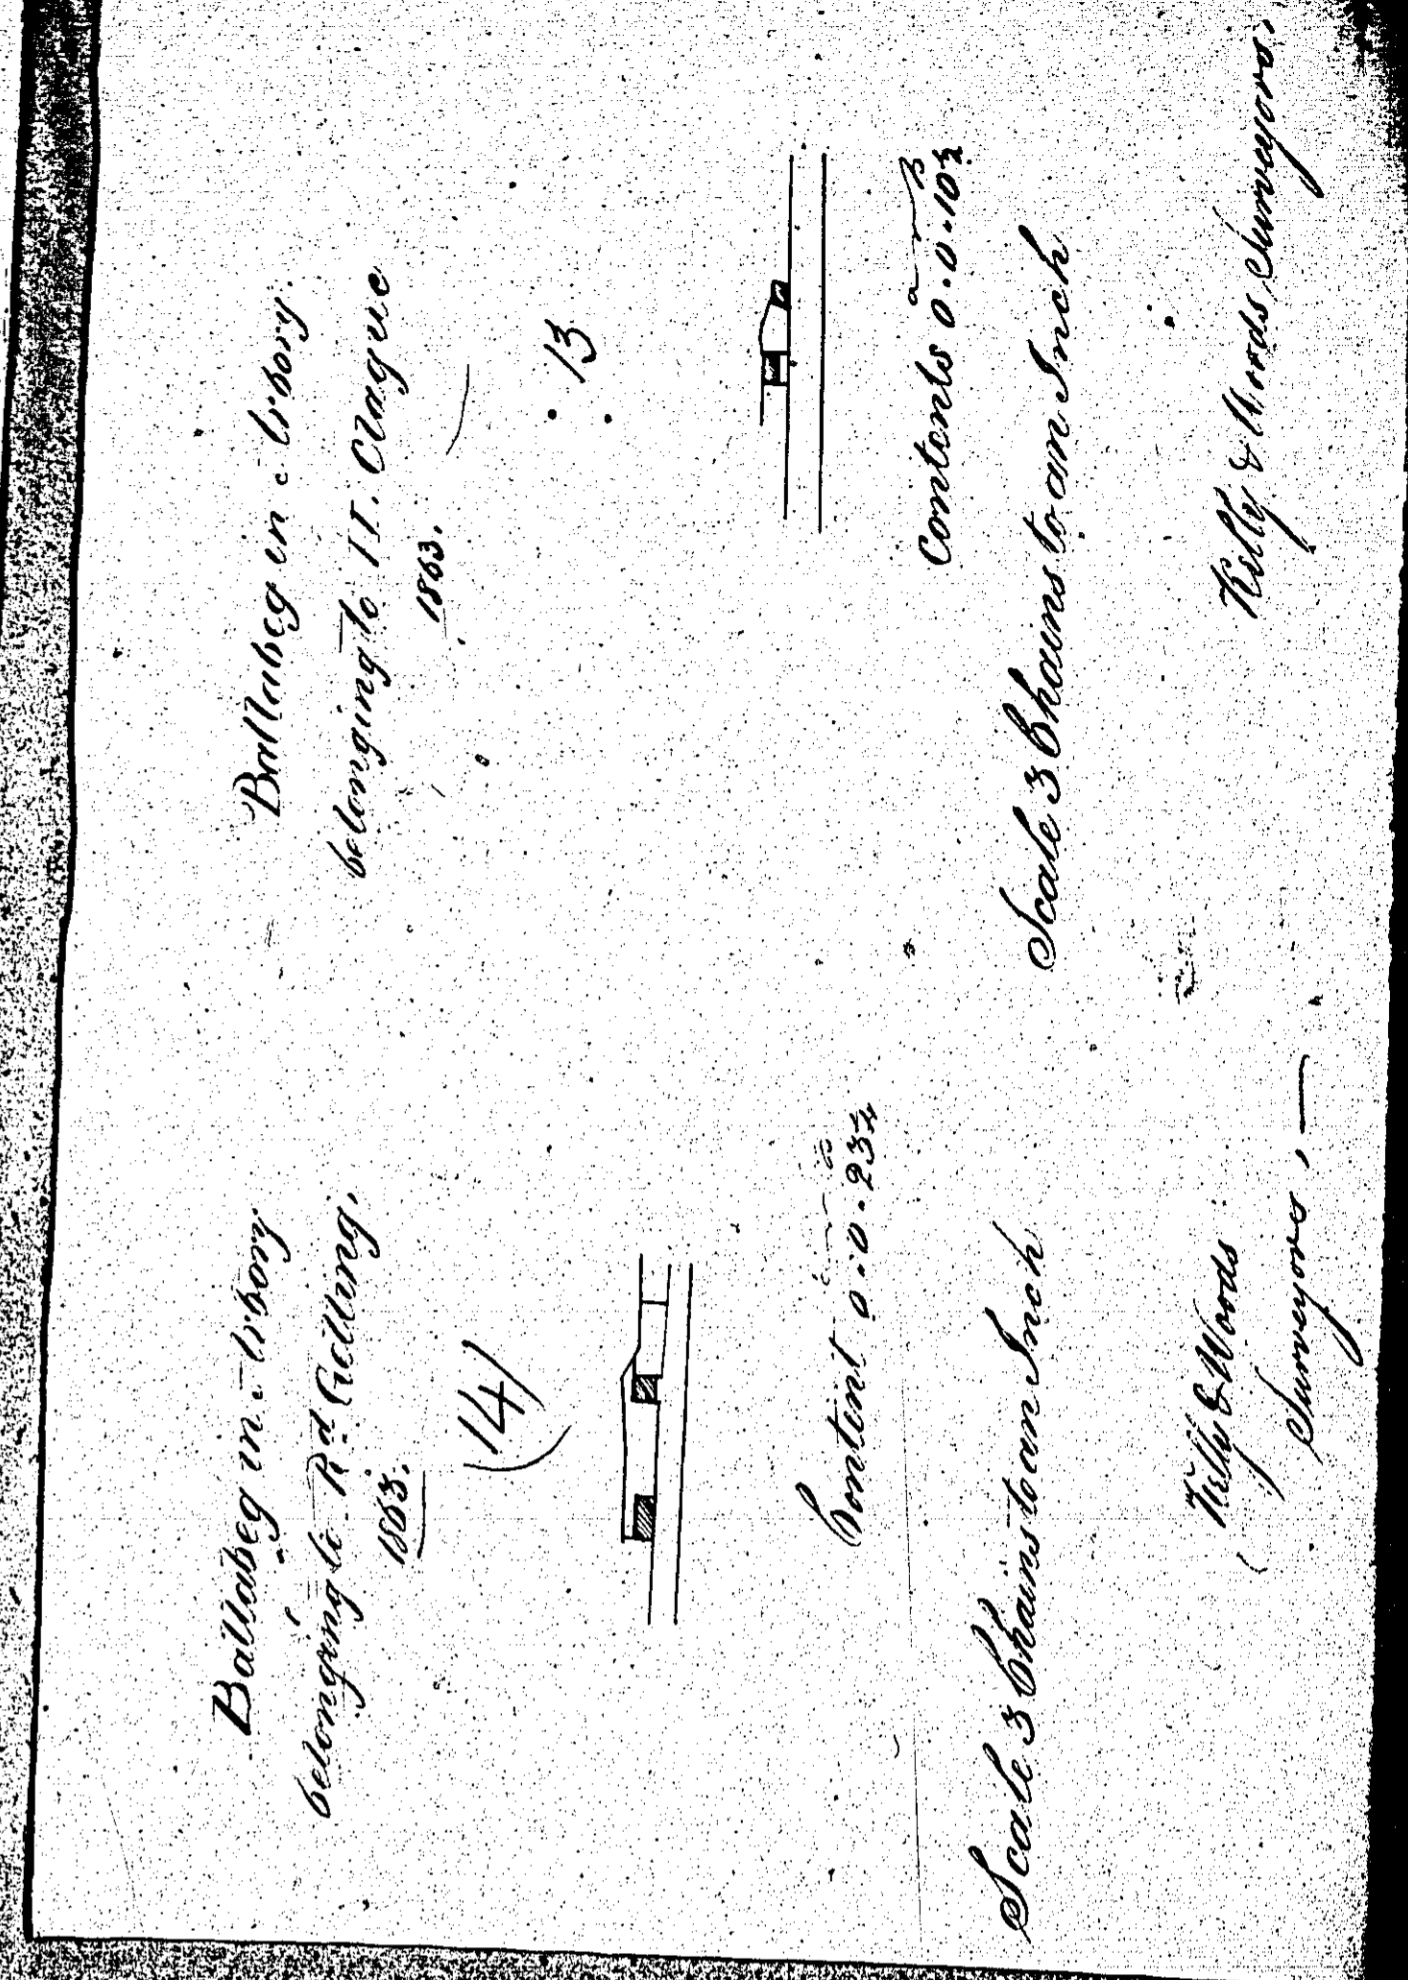 Ballabeg in Arbory
belonging to Rd Gelling,
1863.
(14)
Content 0.0.23¼
Scale 3 Chains to an Inch
Kelly & Woods
Surveyors,—
Ballabeg in Arbory.
belonging to Clague
1863.
13
a r p
Contents 0.0.10½
Scale 3 Chains to an Inch
Kelly & Woods, Surveyors,